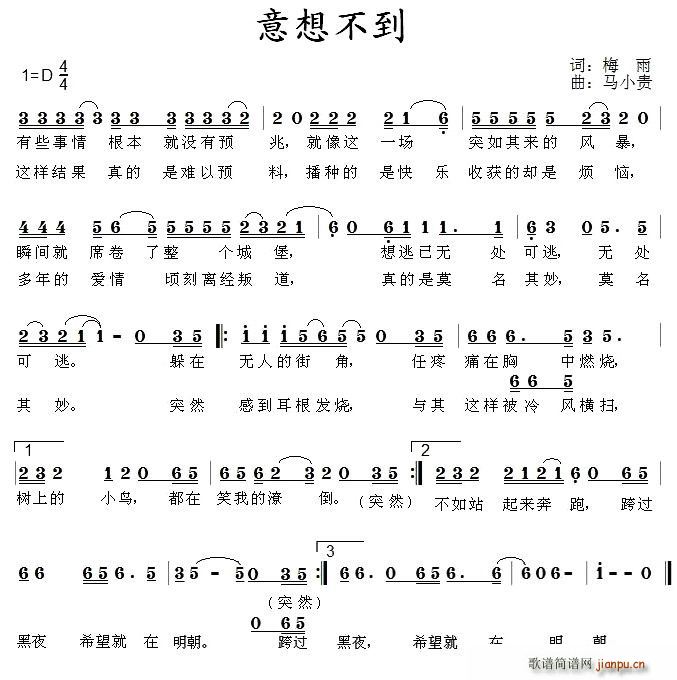 意想不到
1=D 4/4
词：梅 雨
曲：马小贵
3 3 3 3 3 3 3 3 3 3 3 2 | 2 0 2 2 2 2 1 6 | 5 5 5 5 5 2 3 2 0 |
有些事情 根本 就没有预 兆，就像这 一场 突如其来的 风 暴，
这样结果 真的 是难以预 料，播种的 是快乐 收获的却是 烦 恼，
瞬间就 席卷 了整 个城 堡， 想逃已无 处 可逃，无处
多年的 爱情 顷刻离经叛 道， 真的是莫 名 其妙，莫名
可 逃。 躲在 无人的街 角， 任疼 痛在胸 中燃烧，
6 6 5
其 妙。 突然 感到耳根发烧， 与其 这样被冷 风横扫，
1
2
树上的 小鸟， 都在 笑我的潦 倒。（突然） 不如站 起来奔 跑，跨过
3
（突然）
0 6 5
黑夜 希望就 在 明朝。 跨过 黑夜，希望就 在 明 朝
歌谱简谱网
jianpu.cn